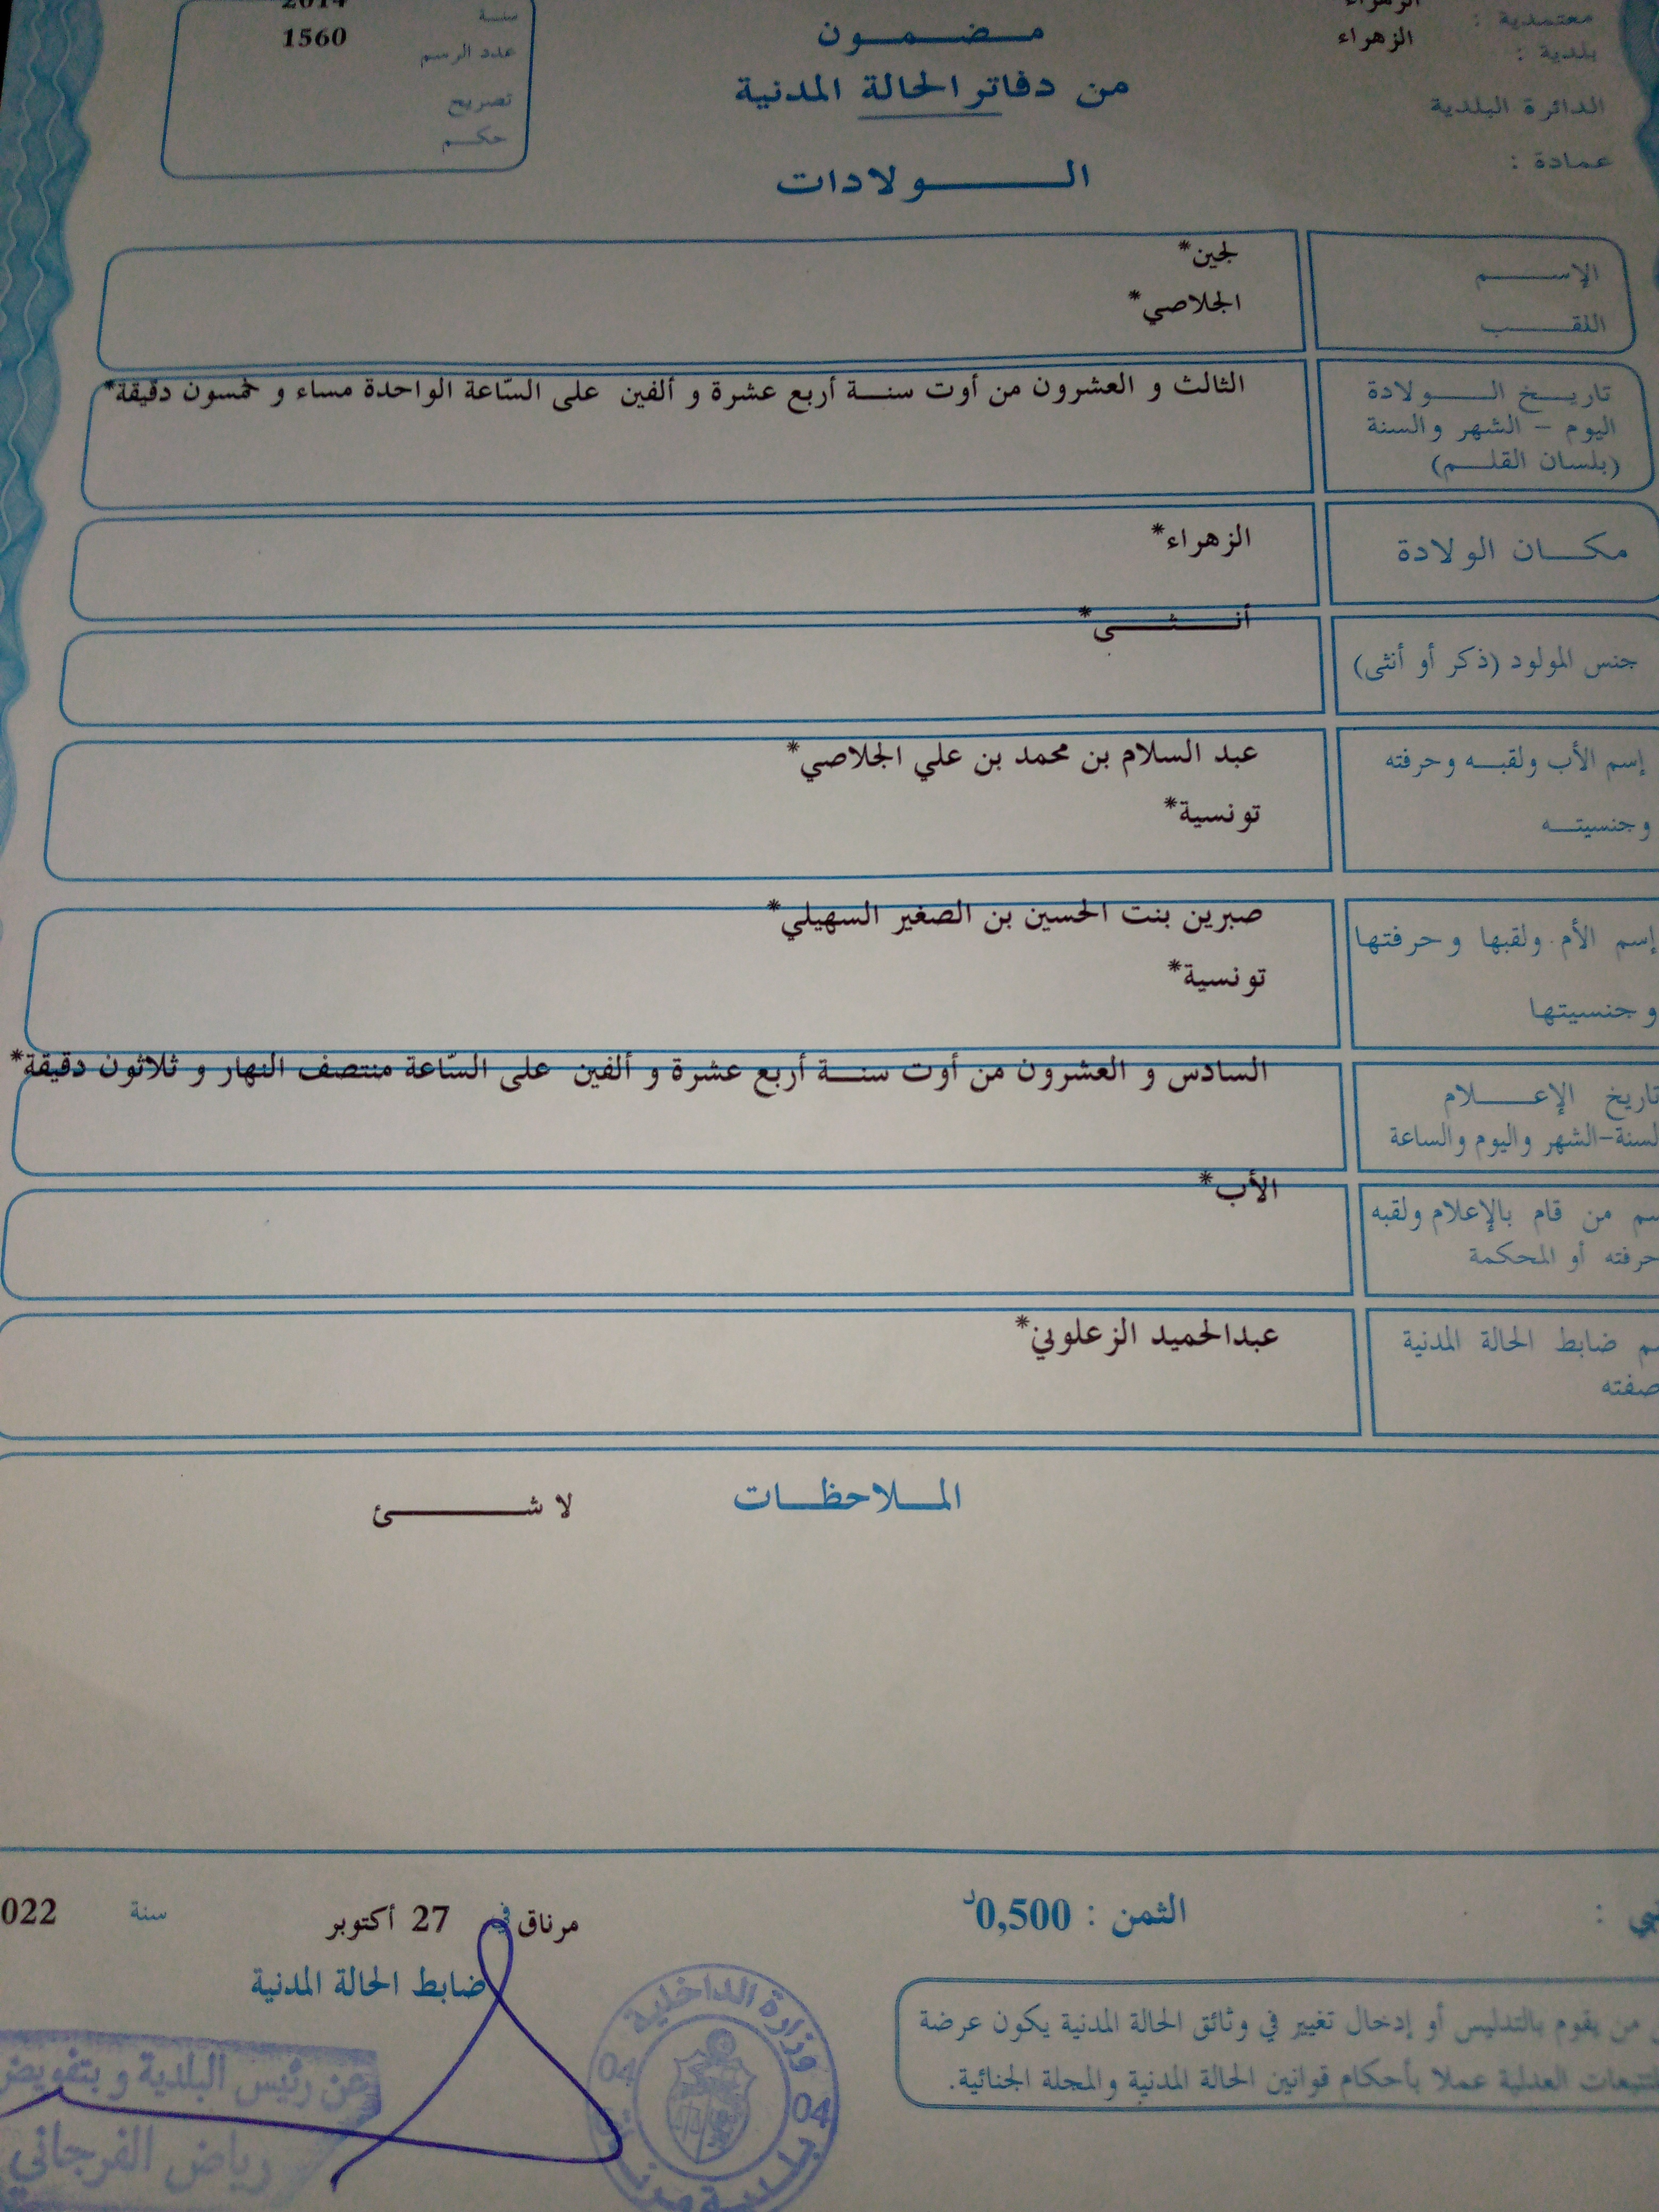 معتمدية : الزهراء
بلدية : الزهراء
الدائرة البلدية
عمادة :
مـضـمـون
من دفاتر الحالة المدنية
الـولادات
سنة 2014
عدد الرسم 1560
تصريح
حكم
الإسم لجين*
اللقب الجلاصي*
تاريخ الولادة
اليوم - الشهر والسنة
(بلسان القلم)
الثالث و العشرون من أوت سنة أربع عشرة و ألفين على السّاعة الواحدة مساء و خمسون دقيقة*
مكان الولادة
الزهراء*
جنس المولود (ذكر أو أنثى)
أنثى*
إسم الأب ولقبه وحرفته
وجنسيته
عبد السلام بن محمد بن علي الجلاصي*
تونسية*
إسم الأم ولقبها وحرفتها
وجنسيتها
صبرين بنت الحسين بن الصغير السهيلي*
تونسية*
تاريخ الإعلام
السنة-الشهر واليوم والساعة
السادس و العشرون من أوت سنة أربع عشرة و ألفين على السّاعة منتصف النهار و ثلاثون دقيقة*
من قام بالإعلام ولقبه
حرفته أو المحكمة
الأب*
ضابط الحالة المدنية
صفته
عبدالحميد الزعلوني*
الملاحظات
لا شئ
الثمن : 0,500د
مرناق في 27 أكتوبر سنة 022
ضابط الحالة المدنية
من يقوم بالتدليس أو إدخال تغيير في وثائق الحالة المدنية يكون عرضة
للتتبعات العدلية عملا بأحكام قوانين الحالة المدنية والمجلة الجنائية.
عن رئيس البلدية و بتفويض
رياض الفرجاني
وزارة الداخلية
04
04
بلدية مرناق